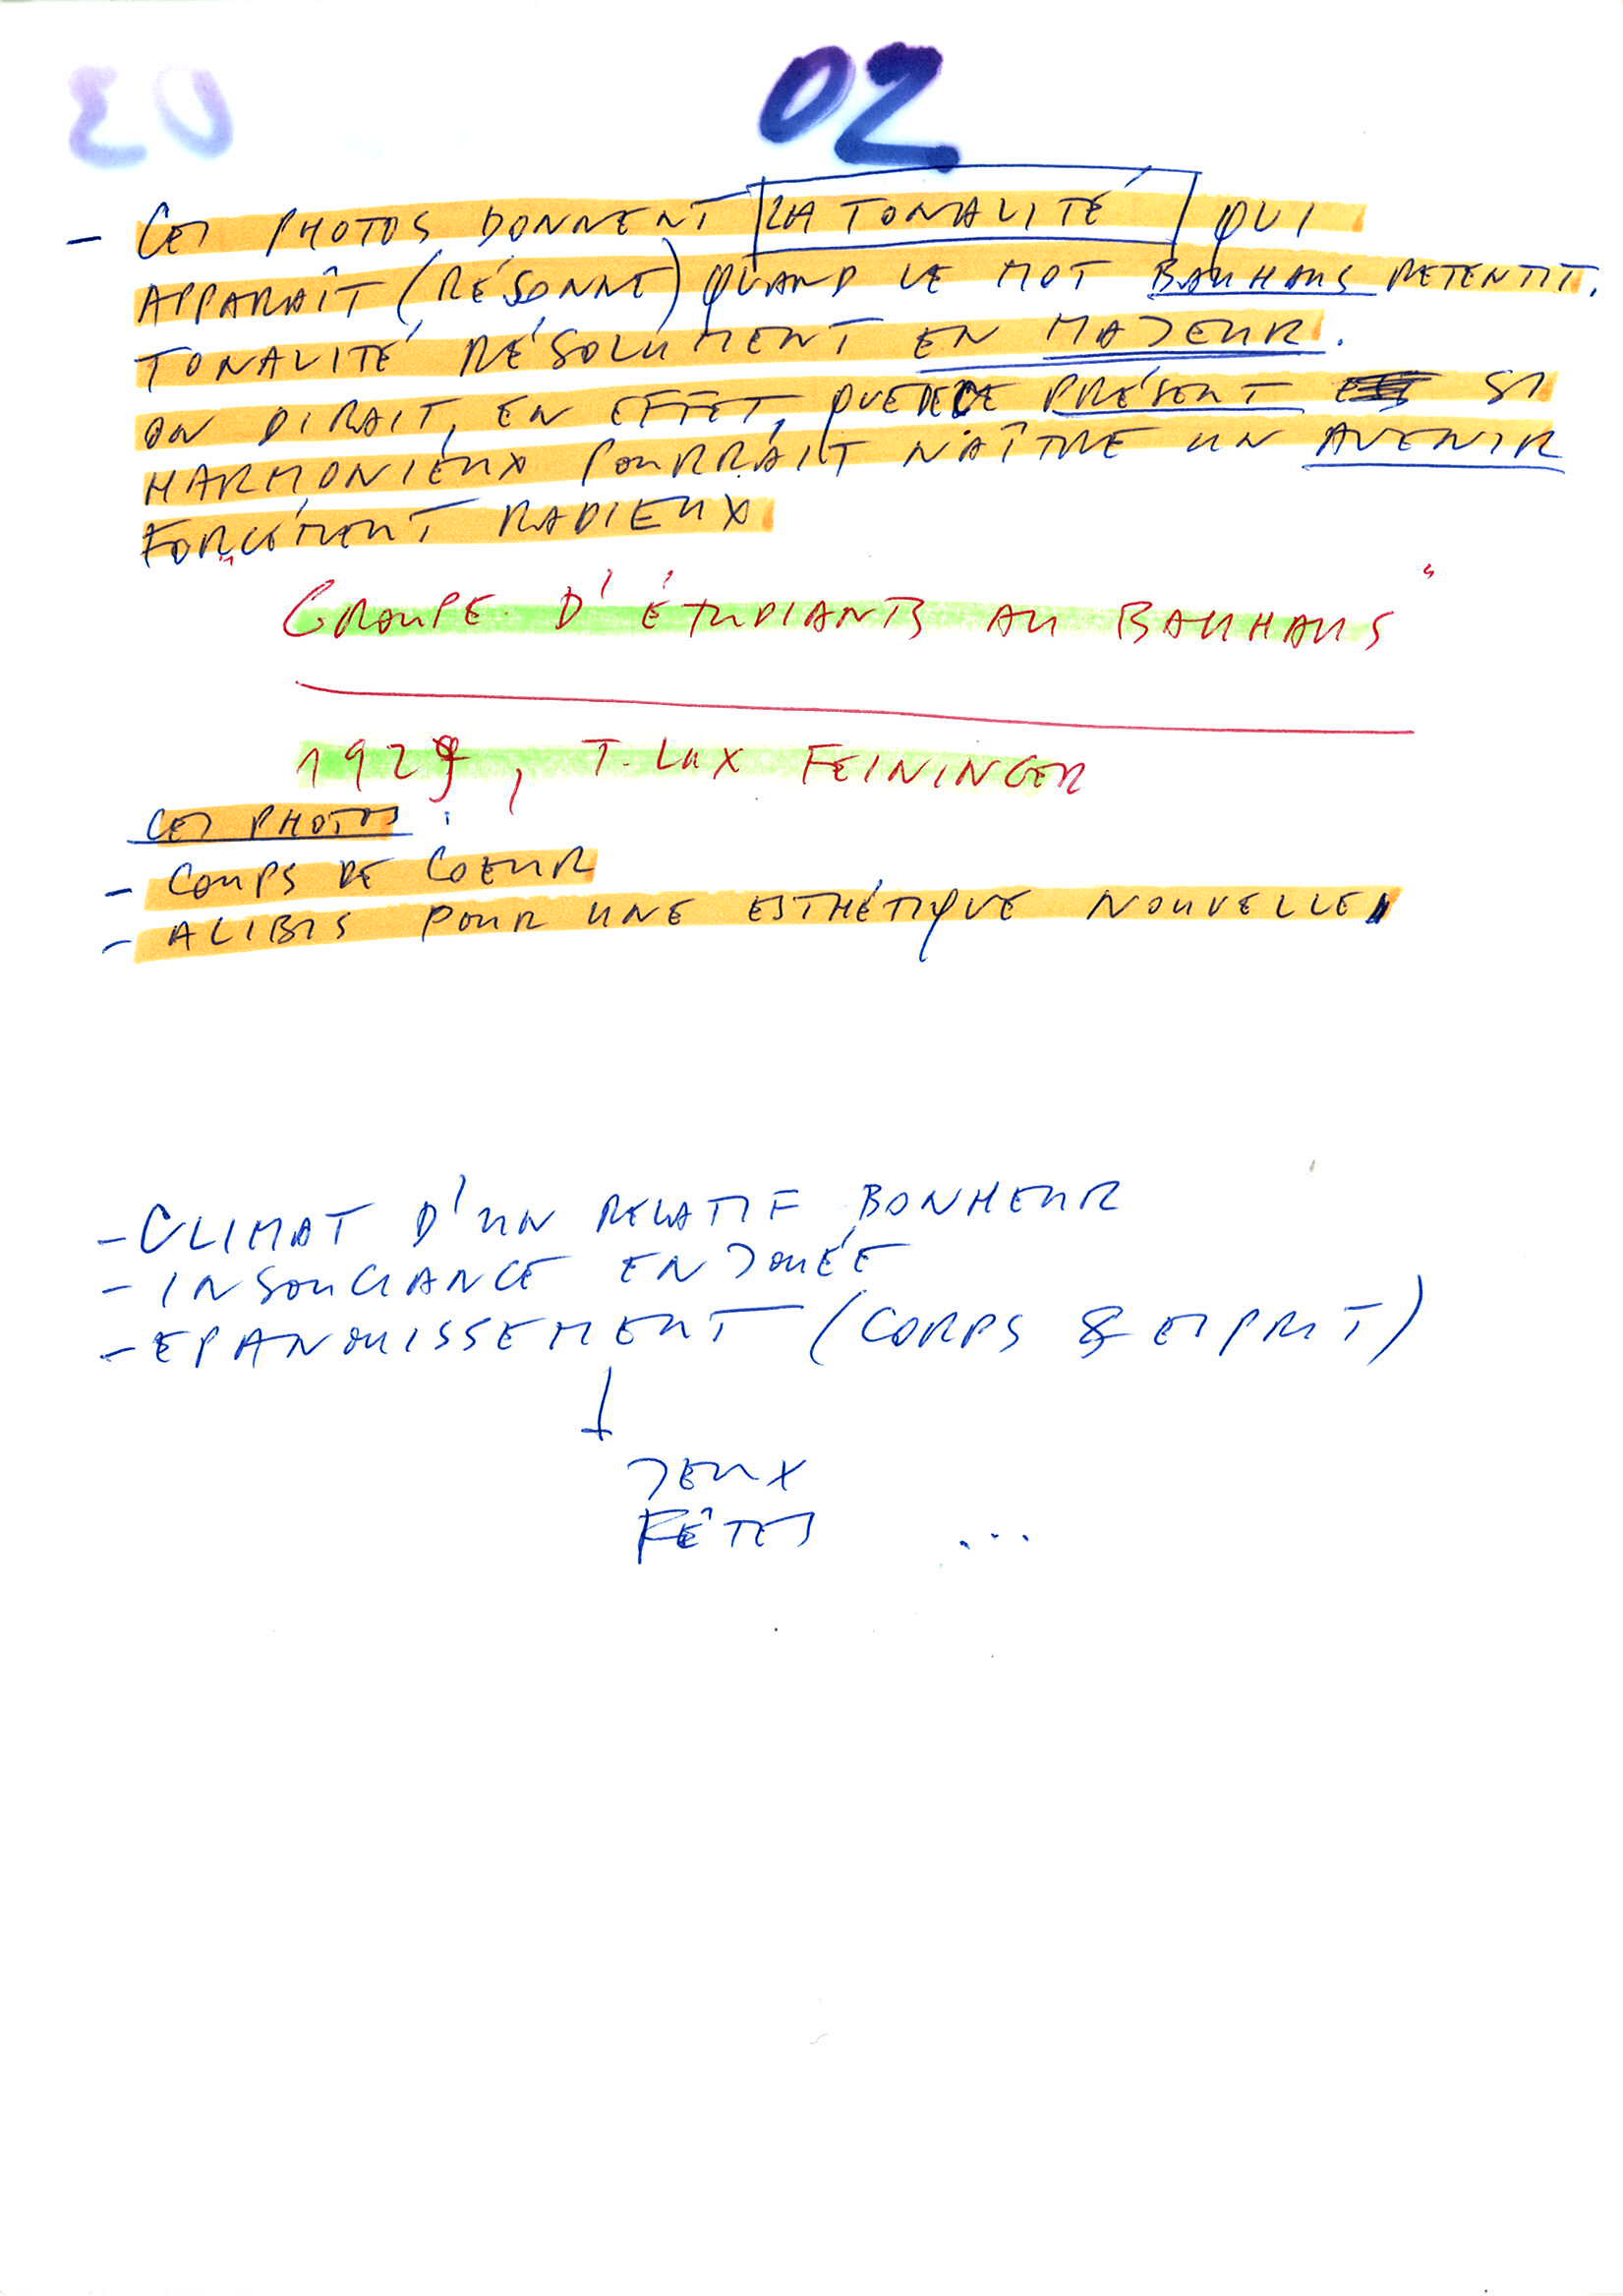 02
- CES PHOTOS DONNENT LA TONALITÉ QUI
APPARAÎT (RÉSONNE) QUAND LE MOT BAUHAUS RETENTIT.
TONALITÉ RÉSOLUMENT EN MAJEUR.
ON DIRAIT, EN EFFET, QUE DE CE PRÉSENT SI
HARMONIEUX POURRAIT NAÎTRE UN AVENIR
FORCÉMENT RADIEUX
"GROUPE D'ÉTUDIANTS AU BAUHAUS"
1929, T. LUX FEININGER
CES PHOTOS :
- COUPS DE COEUR
- ALIBIS POUR UNE ESTHÉTIQUE NOUVELLE
- CLIMAT D'UN RELATIF BONHEUR
- INSOUCIANCE ENJOUÉE
- EPANOUISSEMENT (CORPS & ESPRIT)
JEUX
FÊTES ...